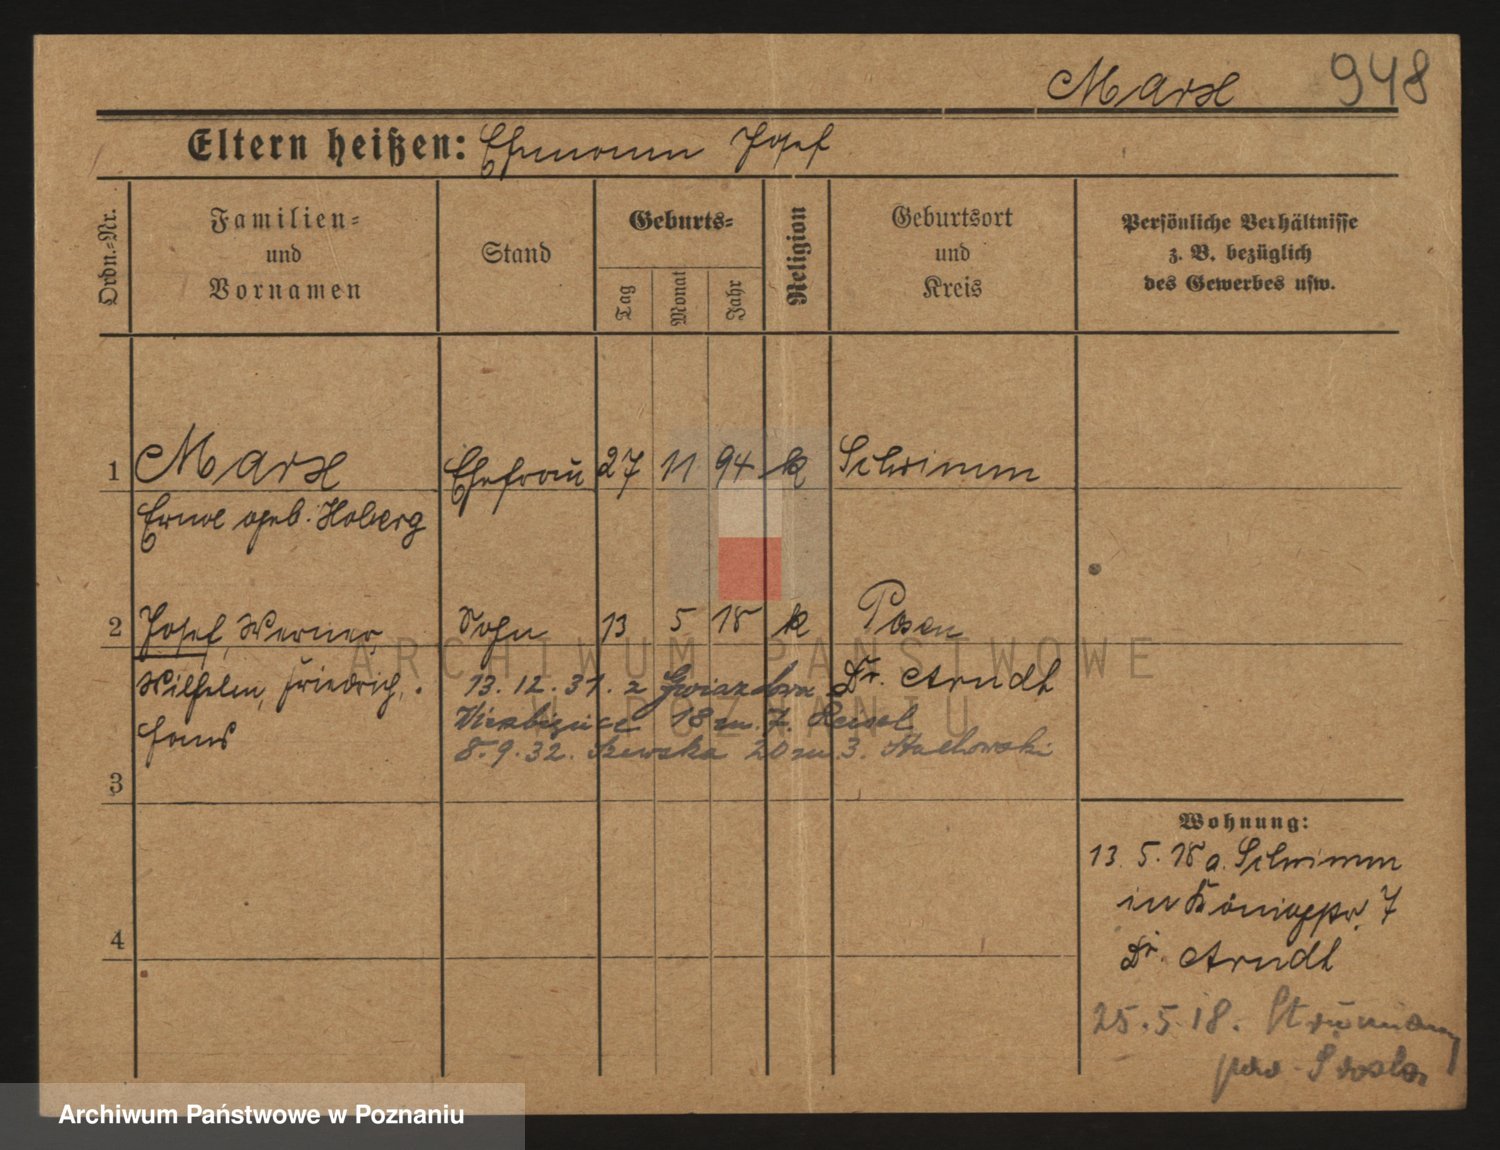 Marx 948
Eltern heißen: Ehemann Josef
Ordn.-Nr.
Familien-
und
Vornamen
Stand
Geburts-
Tag
Monat
Jahr
Religion
Geburtsort
und
Kreis
Persönliche Verhältnisse
z. B. bezüglich
des Gewerbes usw.
1 Marx Ehefrau 27 11 94 k Schrimm
Erna geb. Hoberg
2 Josef, Werner, Sohn 13 5 18 k Posen
Wilhelm, Friedrich, Dr. Arndt
Hans
13.12.31. z Gwiazdowa
Wierzbięcice 18 m. 7.
8.9.32. Szewska 20 m 3. Stachowski
3
4
Wohnung:
13. 5. 18 a. Schrimm
in Königspl. 7
Dr. Arndt
25.5.18.
ARCHIWUM PAŃSTWOWE
W POZNANIU
Archiwum Państwowe w Poznaniu